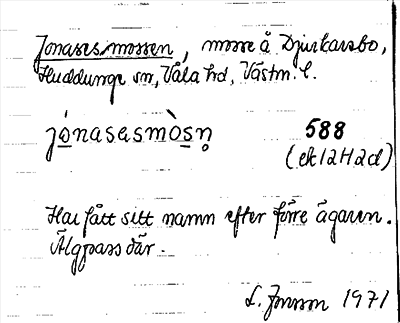 Jonasesmossen, mosse å Djurkarsbo,
Huddunge sn, Våla hd, Västm. l.
jónasasmòsṇ
588
(ek 12H2d)
Har fått sitt namn efter förre ägaren.
Älgpass där.
L. Jonsson 1971